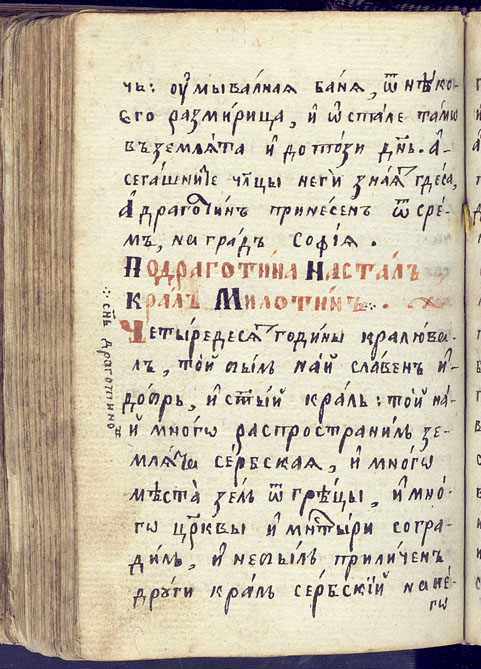 чь: оумывалная баня, ѿ нѣко-
его размирица, и ѡстале тамѡ
въ землята и до този днь. А-
сегашние члцы неги знаят гдеса,
А драготинъ принесен ѿ сре-
мъ, на градъ София.
Подраготина Насталъ
Краль Милотинъ.
Четыредесят години кралюва-
лъ, той билъ най славенъ и-
добръ, и стый краль: той на-
й многѡ распространилъ зе-
млята сербская, и многѡ
мѣста зелъ ѿ грѣцы, и мно-
гѡ црквы и мнтыри согра-
дилъ, и небилъ приличенъ
други краль сербский на не-
гѡ
снъ драготино